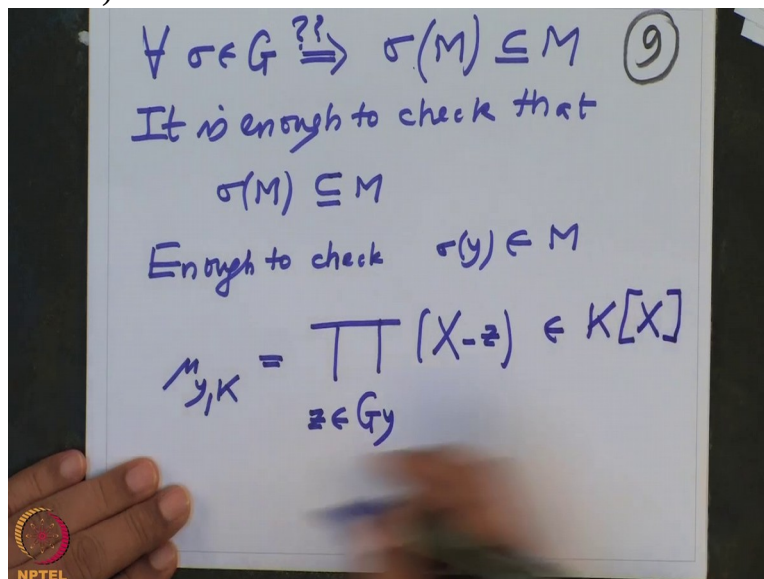 ∀ σ∈G ⇒?? σ(M) ⊆ M 9
It is enough to check that
σ(M) ⊆ M
Enough to check σ(y) ∈ M
μ_{y,K} = ∏_{z∈Gy} (X-z) ∈ K[X]
NPTEL